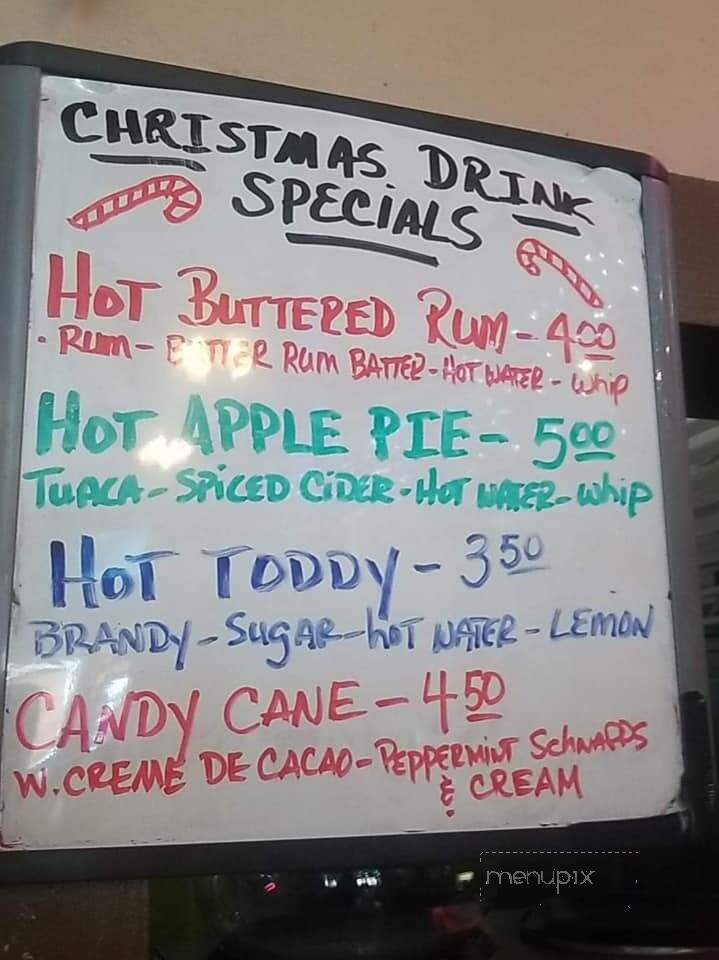 CHRISTMAS DRINK
SPECIALS
HOT BUTTERED RUM - 4.00
· RUM - BUTTER RUM BATTER - HOT WATER - WHIP
HOT APPLE PIE - 5.00
TUACA - SPICED CIDER - HOT WATER - WHIP
HOT TODDY - 3.50
BRANDY - SUGAR - HOT WATER - LEMON
CANDY CANE - 4.50
W. CREME DE CACAO - PEPPERMINT SCHNAPPS
& CREAM
menupix